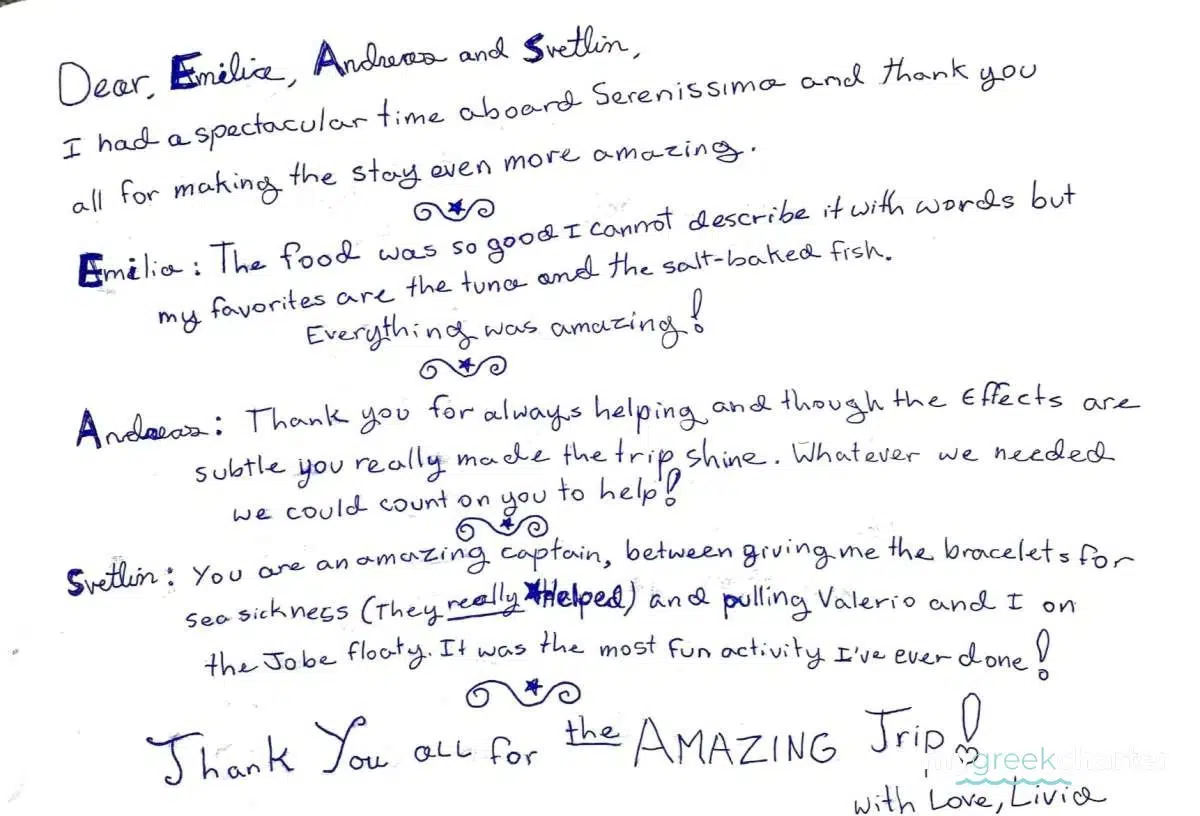 Dear, Emilia, Andreas and Svetlin,
I had a spectacular time aboard Serenissima and thank you
all for making the stay even more amazing.
Emilia: The food was so good I cannot describe it with words but
my favorites are the tuna and the salt-baked fish.
Everything was amazing!
Andreas: Thank you for always helping and though the Effects are
subtle you really made the trip shine. Whatever we needed
we could count on you to help!
Svetlin: You are an amazing captain, between giving me the bracelets for
sea sickness (They really Helped) and pulling Valerio and I on
the Jobe floaty. It was the most fun activity I've ever done!
Thank You all for the AMAZING Trip!
mygreekcharter
with Love, Livia